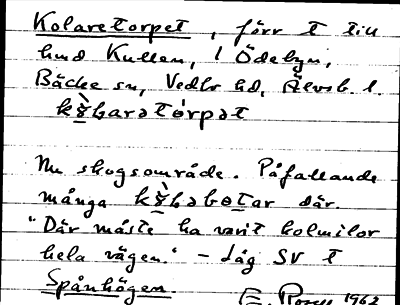 Kolaretorpet, förr t till
hmd Kullen, i Ödebyn,
Bäcke sn, Vedbo hd, Älvsb. l.
Nu skogsområde. Påfallande
många där.
"Där måste ha varit kolmilor
hela vägen." – Låg SV t
Spånhögen.
E. Rosen 1962